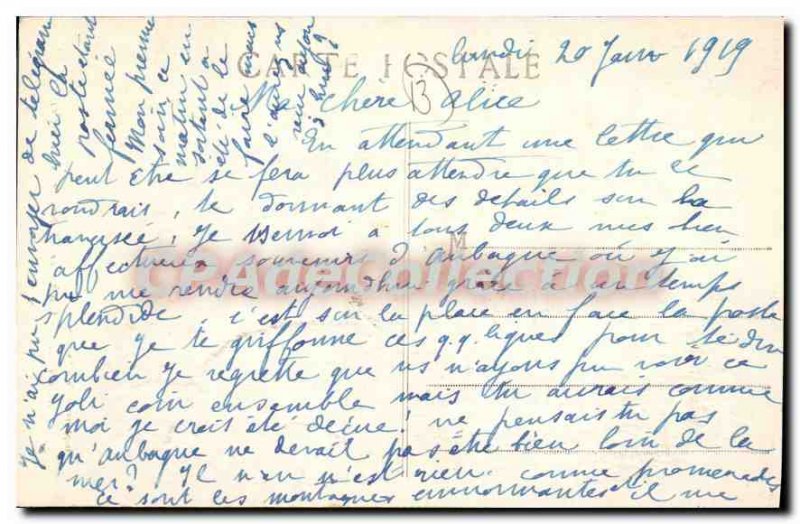 lundi 20 Janv 1919
CARTE POSTALE
13
Ma chère Alice
En attendant une lettre qui
peut être se fera plus attendre que tu le
voudrais, te donnant des détails sur la
traversée, je envoi à tous deux mes bien
affectueux souvenirs d'Aubagne où j'ai
pu me rendre aujourdhui grâce à un temps
splendide, c'est sur la place en face la poste
que je te griffonne ces qq. lignes pour te dire
combien je regrette que ns n'ayons pu voir ce
joli coin ensemble mais tu aurais comme
moi je crois été déçue! ne pensais tu pas
qu'aubagne ne devait pas être bien loin de la
mer? Il n'en n'est rien. comme promenades
ce sont les montagnes environnantes il me
Je n'ai pu t'envoyer de télégramme
hier la
poste étant
fermée
Mon premier
soin ce
matin en
sortant a
été de le
faire mais
CPArteCollection
M